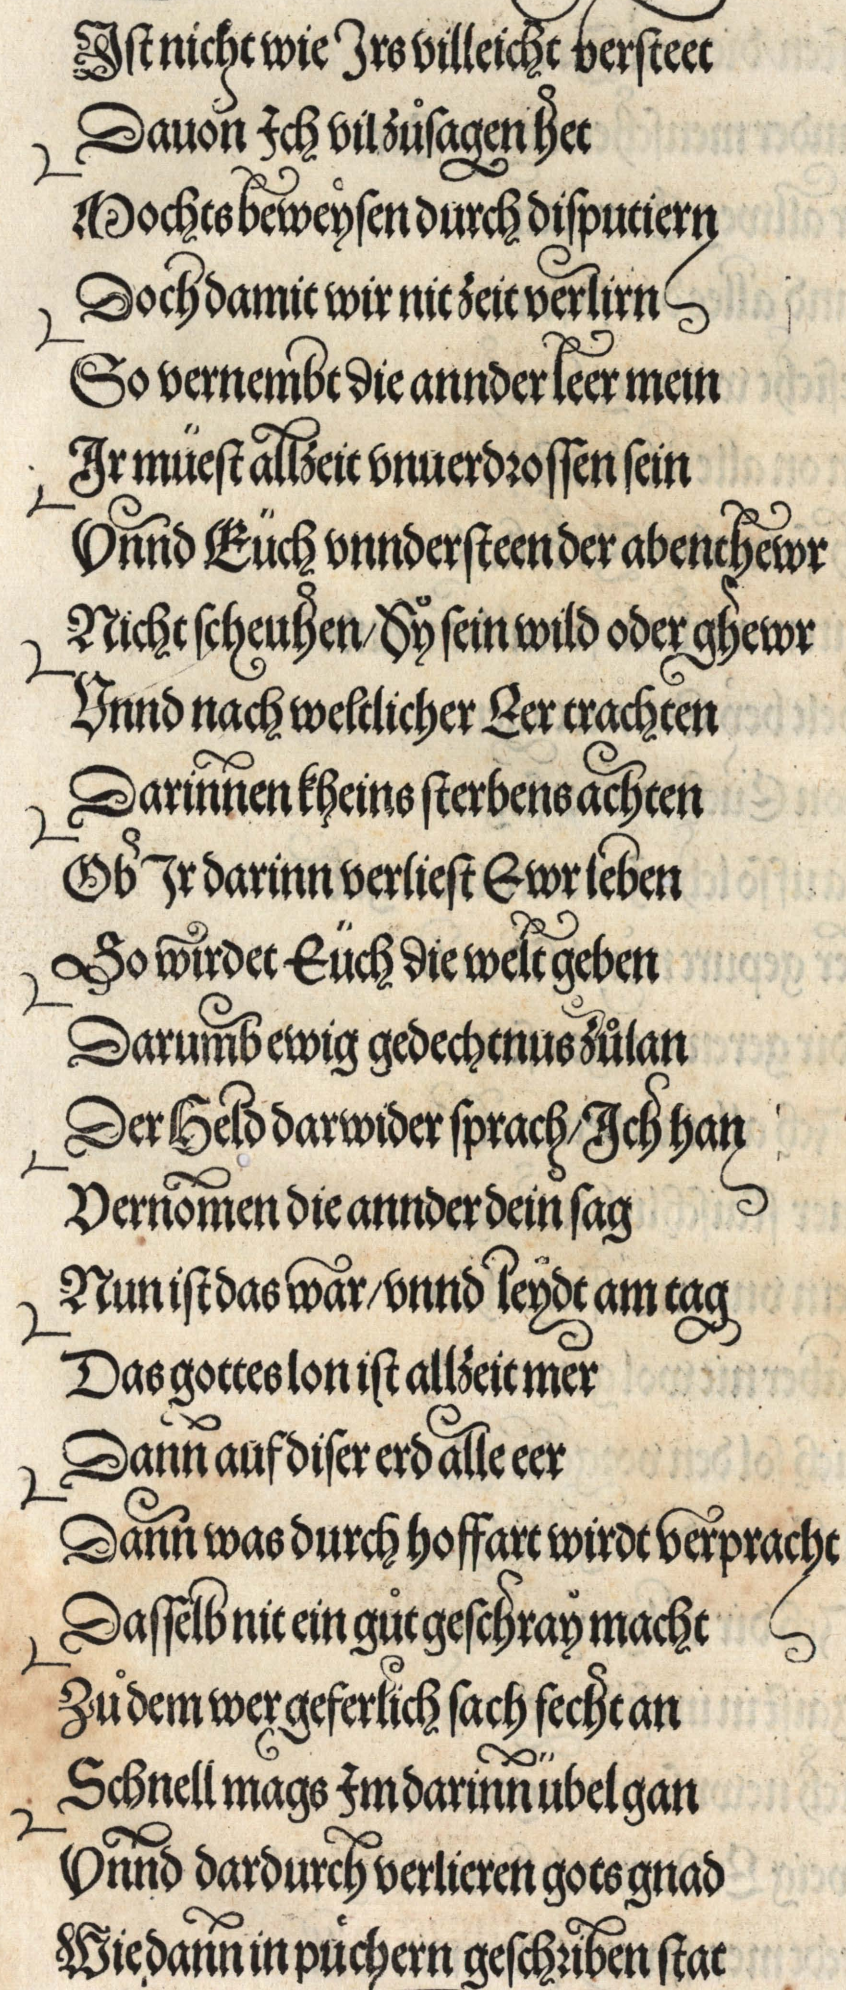 Ist nicht wie Irs villeicht versteet
Dauon Ich vil zůsagen het
Mochts beweysen durch disputiern
Doch damit wir nit zeit verlirn
So vernembt die annder leer mein
Ir müest allzeit vnuerdrossen sein
Vnnd Eüch vnndersteen der abenthewr
Nicht scheuhen/ Sy sein wild oder ghewr
Vnnd nach weltlicher Eer trachten
Darinnen kheins sterbens achten
Ob Ir darinn verliest Ewr leben
So wirdet Eüch die welt geben
Darumb ewig gedechtnus zůlan
Der Held darwider sprach/ Ich han
Vernomen die annder dein sag
Nun ist das war/ vnnd leydt am tag
Das gottes lon ist allzeit mer
Dann auf diser erd alle eer
Dann was durch hoffart wirdt verpracht
Dasselb nit ein gůt geschray macht
Zů dem wer geferlich sach fecht an
Schnell mags Im darinn übel gan
Vnnd dardurch verlieren gots gnad
Wie dann in püchern geschriben stat